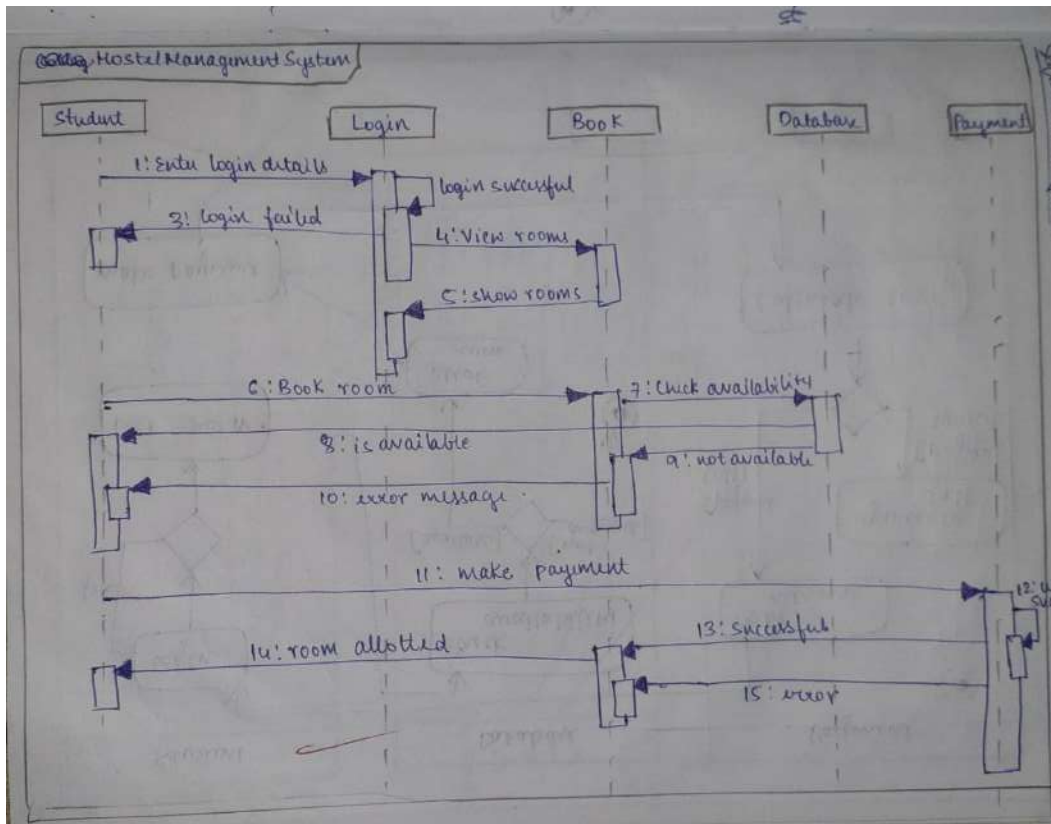 Hostel Management System
Student
Login
Book
Database
Payment
1: Enter login details
login successful
3: login failed
4: View rooms
5: show rooms
6: Book room
7: Check availability
8: is available
9: not available
10: error message
11: make payment
12:
13: successful
14: room allotted
15: error